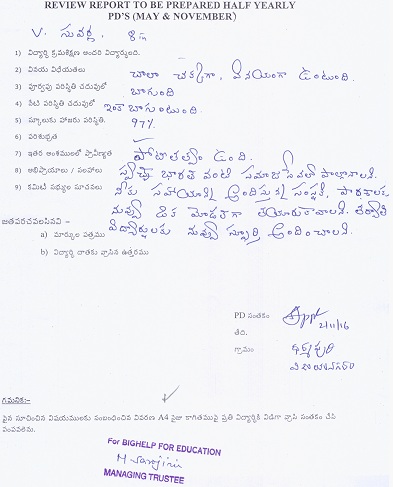 REVIEW REPORT TO BE PREPARED HALF YEARLY
PD'S (MAY & NOVEMBER)
V. సువర్ణ, 8th
1) విద్యార్థి క్రమశిక్షణ అందరి విద్యార్థులది.
2) వినయ విధేయతలు చాలా చక్కగా, వినయంగా ఉంటుంది.
3) పూర్వపు పరిస్థితి చదువులో బాగుంది
4) నేటి పరిస్థితి చదువులో ఇంకా బాగుంటుంది.
5) స్కూలుకు హాజరు పరిస్థితి. 97%
6) పరిశుభ్రత
7) ఇతర అంశములలో ప్రావీణ్యత పోటీతత్వం ఉంది.
8) అభిప్రాయాలు / సలహాలు స్వచ్ఛ భారత్ వంటి సమాజసేవలో పాల్గొనాలి.
9) కమిటీ సభ్యుల సూచనలు నీకు సహాయాన్ని అందిస్తున్న సంస్థకి, పాఠశాలకు
నువ్వు ఒక మోడల్‌గా తయారుకావాలి. తర్వాతి
జతపరచవలసినవి – విద్యార్థులకు నువ్వు స్ఫూర్తి అందించాలి.
a) మార్కుల పత్రము
b) విద్యార్థి దాతకు వ్రాసిన ఉత్తరము
PD సంతకం
తేది. 2/11/16
గ్రామం ధర్మపురి
విజయనగరం
గమనిక:–
పైన సూచించిన విషయములకు సంబంధించిన వివరణ A4 సైజు కాగితముపై ప్రతి విద్యార్థికి విడిగా వ్రాసి సంతకం చేసి
పంపవలెను.
For BIGHELP FOR EDUCATION
M Sarojini
MANAGING TRUSTEE